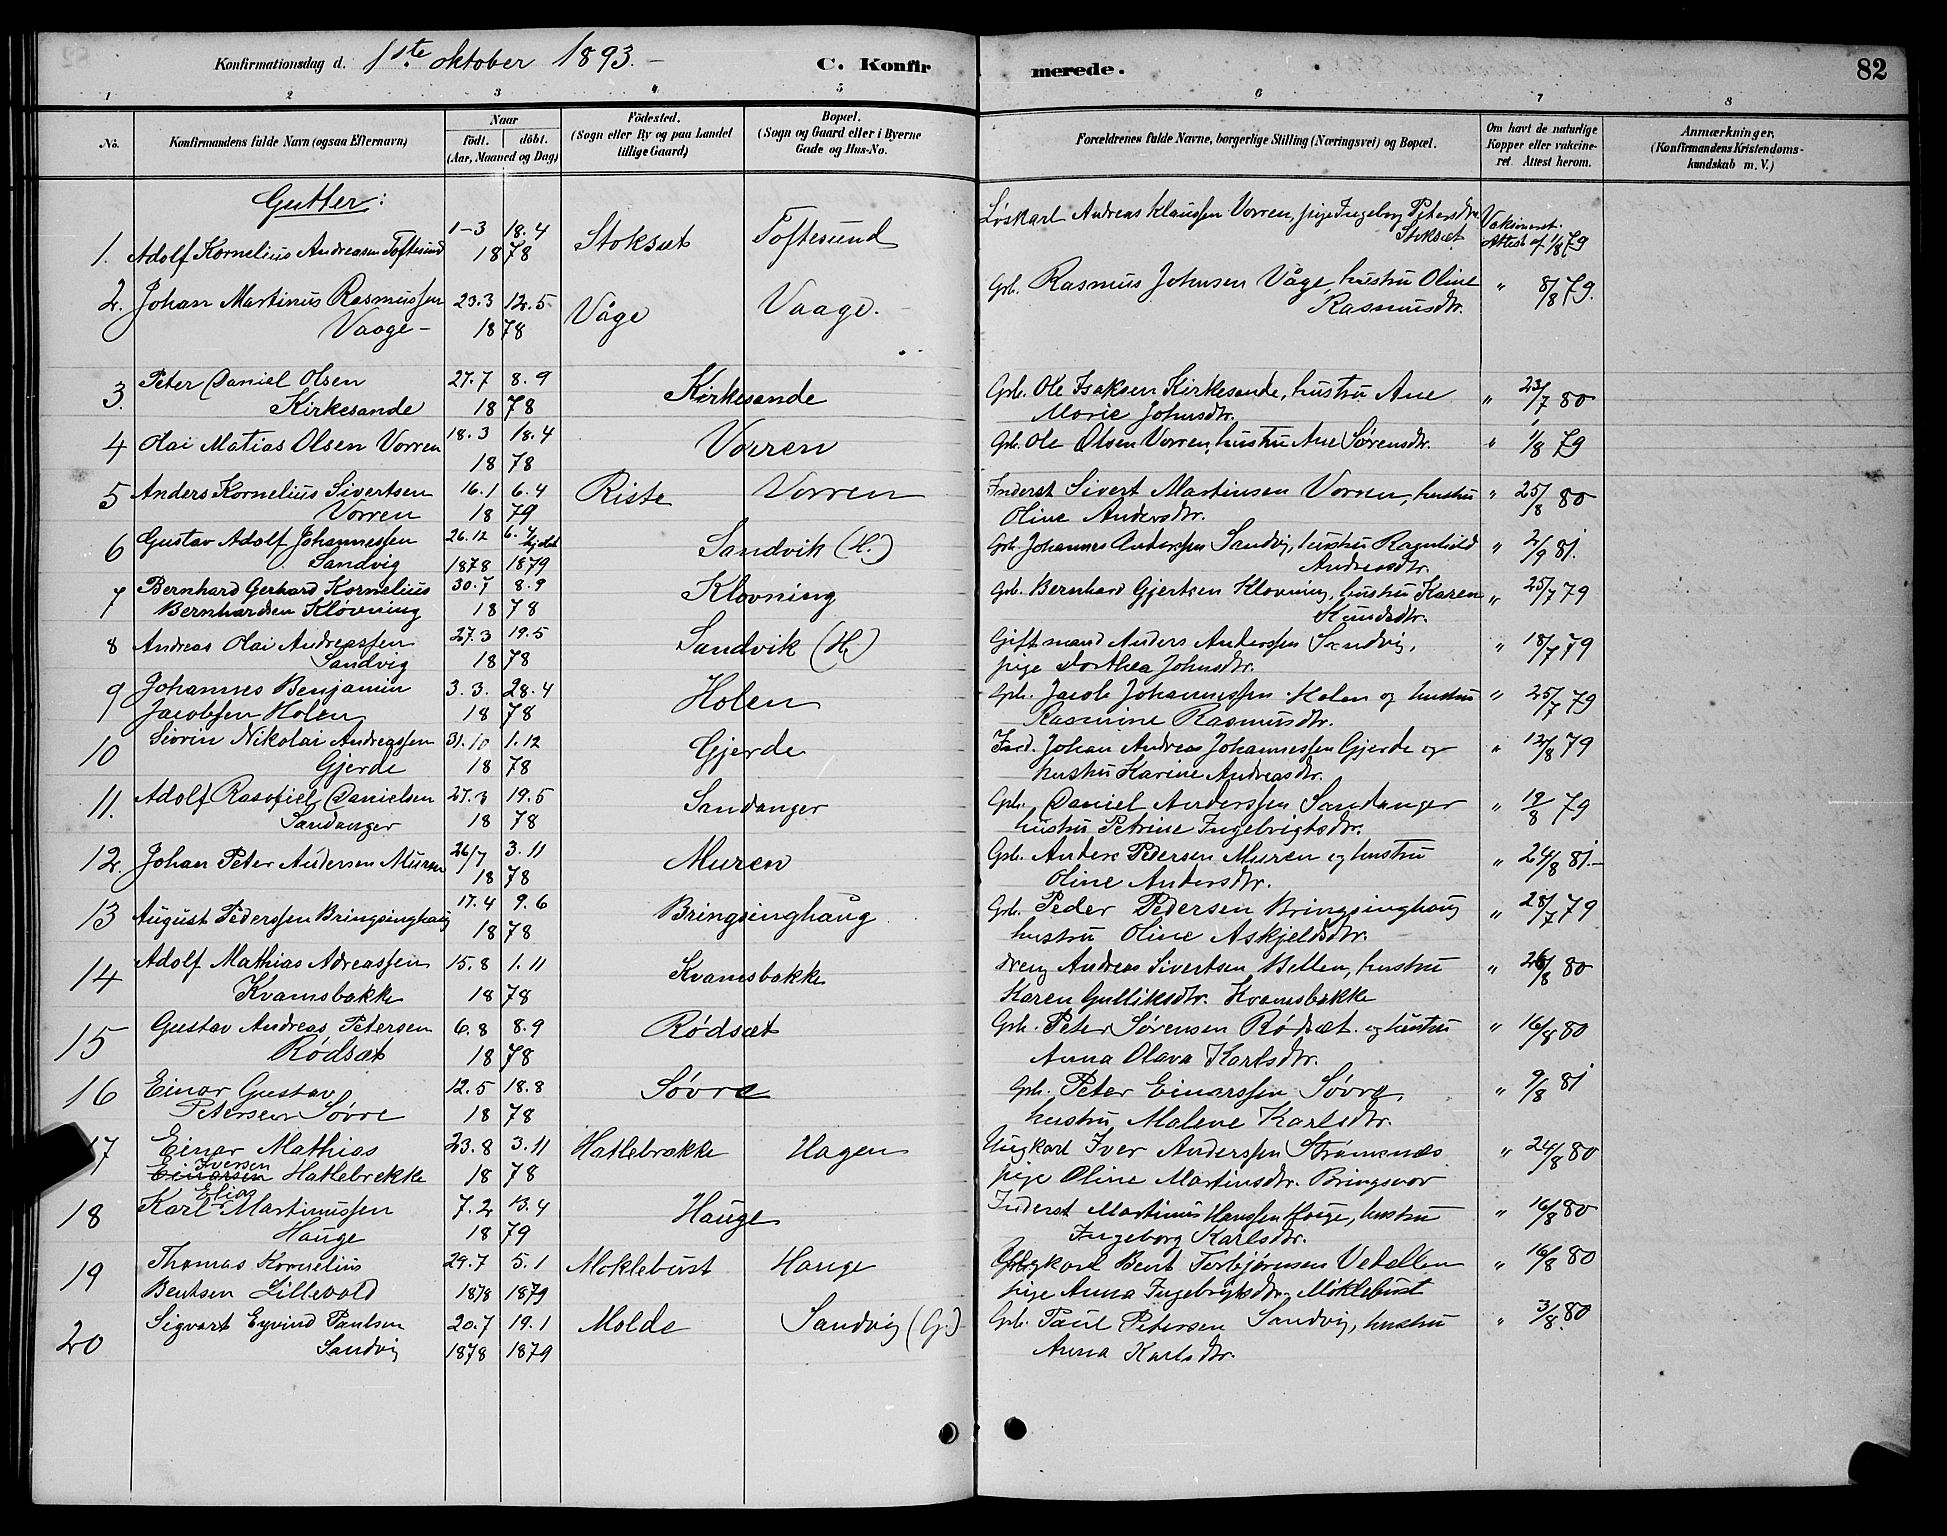 Konfirmationsdag d. 1ste oktober 1893.- C. Konfirmerede. 82
1 2 3 4 5 6 7 8
No. Konfirmandens fulde Navn (ogsaa Efternavn) Naar født. døbt. (Aar, Maaned og Dag) Fødested. (Sogn eller By og paa Landet tillige Gaard) Bopæl. (Sogn og Gaard eller i Byerne Gade og Hus-No. Forældrenes fulde Navne, borgerlige Stilling (Næringsvei) og Bopæl. Om havt de naturlige Kopper eller vakcineret. Attest herom. Anmærkninger. (Konfirmandens Kristendomskundskab m. V.)
Gutter:
1. Adolf Kornelius Andreasen Toftesund 1-3 18.4 1878 Stoksæt Toftesund Løskarl Andreas Klaussen Vorren, pige Ingeborg Petersdtr. Stoksæt Vaksineret. Attest af 1/8 79
2. Johan Martinus Rasmussen Vaage- 23.3 12.5 1878 Våge Vaage. Grb. Rasmus Johnsen Våge, hustru Oline Rasmusdtr. " 8/8 79.
3. Peter Daniel Olsen Kirkesande 27.7 8.9 1878 Kirkesande Grb. Ole Isaksen Kirkesande, hustru Ane Marie Johnsdtr. " 23/7 80
4 Olai Matias Olsen Vorren 18.3 18.4 1878 Vorren Grb. Ole Olsen Vorren, hustru Ane Sørensdtr. " 1/8 79
5 Anders Kornelius Sivertsen Vorren 16.1 6.4 1879 Riste Vorren Inderst Sivert Martinsen Vorren, hustru Oline Andersdtr. " 25/8 80
6 Gustav Adolf Johannessen Sandvig 26.12 1878 6.4 1879 Sandvik (H.) Grb. Johannes Anderssen Sandvig, hustru Ragnhild Andreasdtr. " 2/9 81.
7 Bernhard Gerhard Kornelius Bernhardsen Kløvning 30.7 8.9 1878 Klovning Grb. Bernhard Gjertsen Klovning, hustru Karen Knudsdtr. " 25/7 79
8 Andreas Olai Andreassen Sandvig 27.3 19.5 1878 Sandvik (H.) Gift mand Anders Anderssen Sandvig, pige Dorthea Johnsdtr. " 18/7 79
9 Johannes Benjamin Jacobsen Holen 3.3. 28.4 1878 Holen Grb. Jacob Johannessen Holen og hustru Rasmine Rasmusdtr. " 25/7 79
10 Siorin Nikolai Andreassen Gjerde 31.10 1.12 1878 Gjerde Johan Andreas Johannessen Gjerde og hustru Karine Andreasdtr. " 12/8 79
11. Adolf Rasofiel Danielsen Sandanger 27.3 19.5 1878 Sandanger Grb. Daniel Anderssen Sandanger hustru Petrine Ingebrigtsdtr. " 19/8 79
12. Johan Peter Andersen Muren 26/7 3.11 1878 Muren Grb. Anders Pedersen Muren og hustru Oline Andersdtr. " 24/8 81.-
13 August Pederssen Bringsinghaug 17.4 9.6 1878 Bringsinghaug Grb. Peder Pedersen Bringsinghaug hustru Oline Askjeldsdtr. " 28/7 79
14 Adolf Mathias Adreassen Kvamsbakke 15.8 1.11 1878 Kvamsbakke dreng Andreas Sivertsen Hellen, hustru Karen Gulliksdtr. Kvamsbakke " 26/8 80
15 Gustav Andreas Petersen Rødsæt 6.8 8.9 1878 Rødsæt Grb. Peter Sørensen Rødsæt og hustru Anna Olava Karlsdtr. " 16/8 80
16 Einar Gustav Petersen Søvre 12.5 18.8 1878 Søvre Grb. Peter Einarssen Søvre, hustru Malene Karlsdtr. " 9/8 81
17 Einar Mathias Iversen Einarsen Hatlebrekke 23.8 3.11 1878 Hatlebrække Hagen Ungkarl Iver Anderssen Strømsnes pige Oline Martinsdtr. Bringsvor " 24/8 80
18 Karl Elias Martinussen Hauge 7.2 13.4 1879 Hauge Inderst Martinus Hanssen Hauge, hustru Ingeborg Karlsdtr. " 16/8 80
19 Thomas Kornelius Bentsen Lillevold 29.7 1878 5.1 1879 Moklebust Hauge Ungkarl Bent Torbjørnsen Vedellen pige Anna Ingebrigtsdtr. Møklebust " 16/8 80
20 Sigvart Eyvind Paulsen Sandvig 20.7 1878 19.1 1879 Molde Sandvig (G.) Grb. Paul Petersen Sandvig, hustru Anna Karlsdtr. " 3/8 80